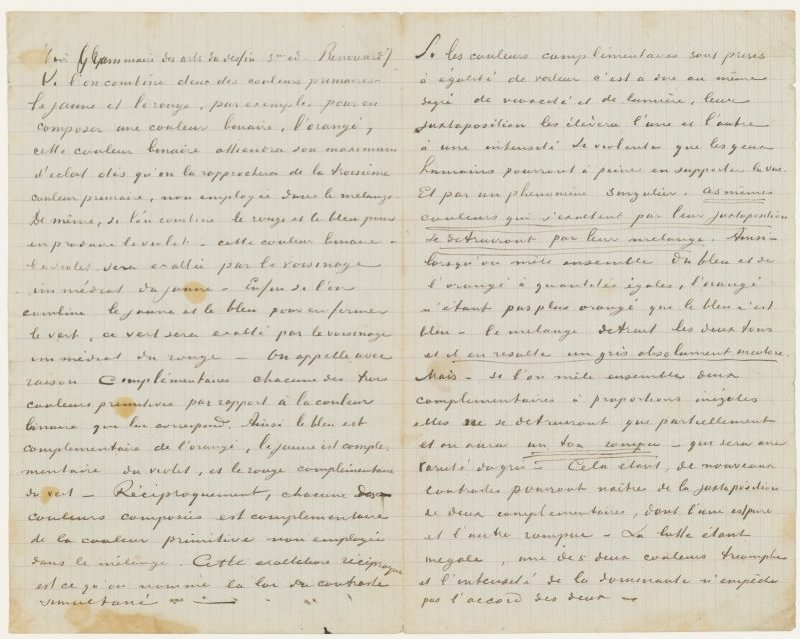 Voir Grammaire des arts du dessin 3me ed Renouard)
Si l'on combine deux des couleurs primaires
le jaune et le rouge, par exemple, pour en
composer une couleur binaire, l'orangé,
cette couleur binaire atteindra son maximum
d'éclat dès qu'on la rapprochera de la troisième
couleur primaire, non employée dans le mélange.
De même, si l'on combine le rouge et le bleu pour
en produire le violet – cette couleur binaire –
le violet, sera exaltée par le voisinage
immédiat du jaune – Enfin si l'on
combine le jaune et le bleu pour en former
le vert, ce vert sera exalté par le voisinage
immédiat du rouge – On appelle avec
raison Complémentaires chacune des trois
couleurs primitives par rapport à la couleur
binaire qui lui correspond. Ainsi le bleu est
complementaire de l'orangé, le jaune est comple-
mentaire du violet, et le rouge complémentaire
du vert – Réciproquement, chacune des
couleurs composées est complementaire
de la couleur primitive non employée
dans le mélange. Cette exaltation réciproque
est ce qu'on nomme la loi du contraste
simultané –
Si les couleurs complémentaires sont prises
à égalité de valeur c'est à dire au même
degré de vivacité et de lumière, leur
juxtaposition les élèvera l'une et l'autre
à une intensité si violente que les yeux
humains pourront à peine en supporter la vue.
Et par un phenomène singulier, ces mêmes
couleurs qui s'exaltent par leur juxtaposition
se detruiront par leur mélange. Ainsi –
lorsqu'on mêle ensemble du bleu et de
l'orangé à quantités égales, l'orangé
n'étant pas plus orangé que le bleu n'est
bleu – le melange detruit les deux tons
et il en resulte un gris absolument incolore.
Mais – si l'on mêle ensemble deux
complementaires à proportions inégales
elles ne se detruiront que partiellement
et on aura un ton rompu – qui sera une
varieté du gris – Cela étant, de nouveaux
contrastes pourront naître de la juxtaposition
de deux complementaires, dont l'une est pure
et l'autre rompue – La lutte étant
inegale, une des deux couleurs triomphe
et l'intensité de la dominante n'empêche
pas l'accord des deux –